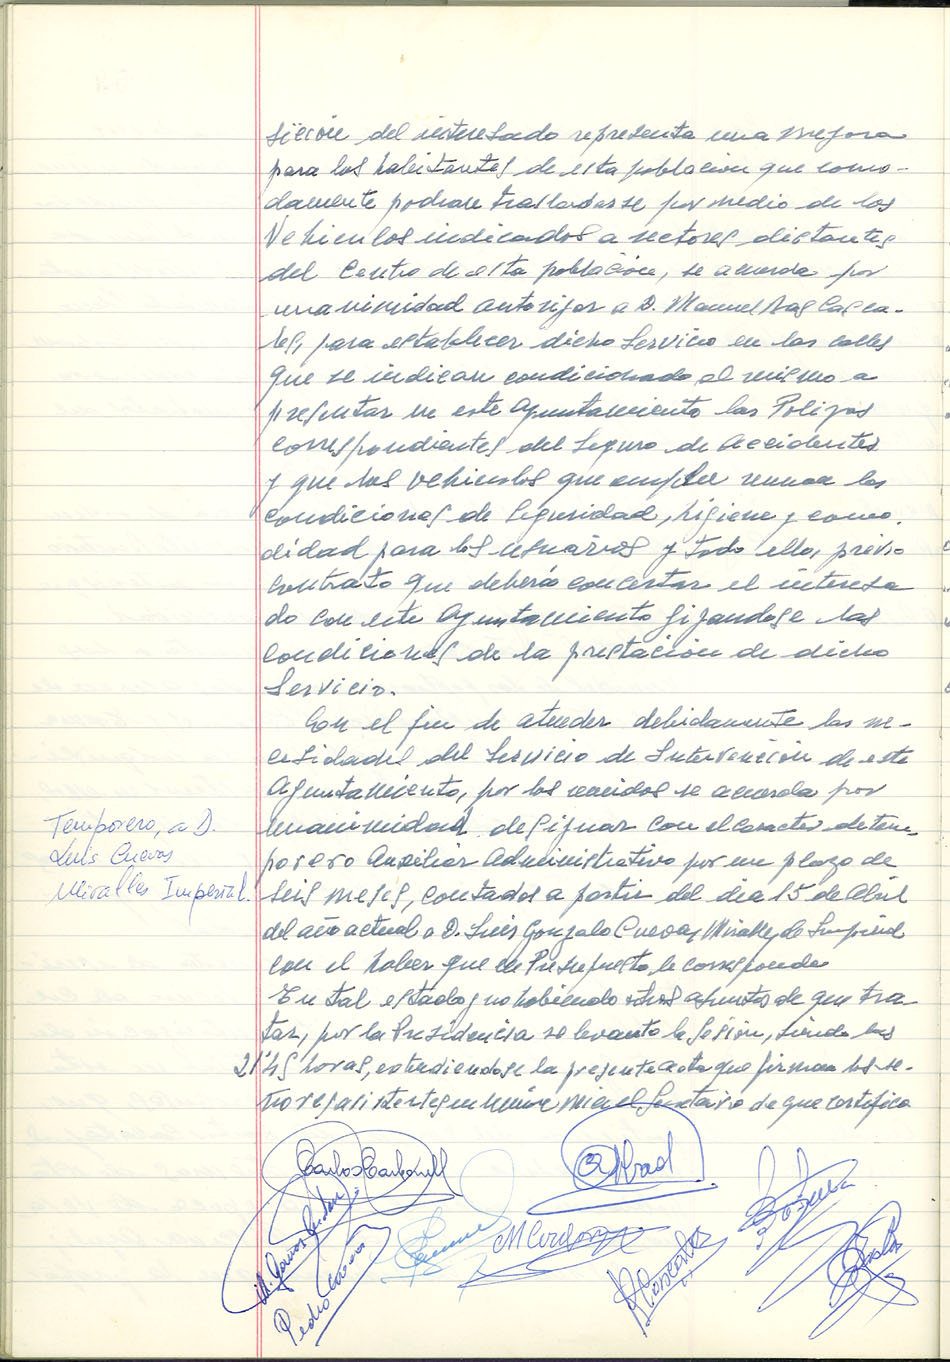 sición del interesado representa una mejora
para los habitantes de esta población que como-
damente podrán trasladarse por medio de los
Vehículos indicados a sectores distantes
del Centro de esta población, se acuerda por
unanimidad autorizar a D. Manuel Bas Casca-
les, para establecer dicho Servicio en las calles
que se indican condicionado el mismo a
presentar en este Ayuntamiento las Polizas
correspondientes del Seguro de Accidentes
y que los vehiculos que emplee reunan las
condiciones de Seguridad, higiene y como-
didad para los usuarios y todo ello, previo
contrato que deberá concertar el interesa
do con este Ayuntamiento fijandose las
condiciones de la prestación de dicho
Servicio.
Con el fin de atender debidamente las ne-
cesidades del Servicio de Intervención de este
Ayuntamiento, por los reunidos se acuerda por
Temporero, a D.
Luis Cuevas
Miralles Imperial.
unanimidad designar con el caracter de tem-
porero Auxiliar Administrativo por un plazo de
seis meses, contados a partir del dia 15 de Abril
del año actual a D. Luis Gonzalo Cuevas Miralles de Imperial
con el haber que en Presupuesto le corresponde
En tal estado y no habiendo otros asuntos de que tra-
tar, por la Presidencia se levanto la Sesión, siendo las
21'45 horas, extendiendose la presente acta que firman los se-
ñores asistentes en unión de mi el Secretario de que certifico
Carlos Carbonell
Abad
M. Cerdan
Pedro